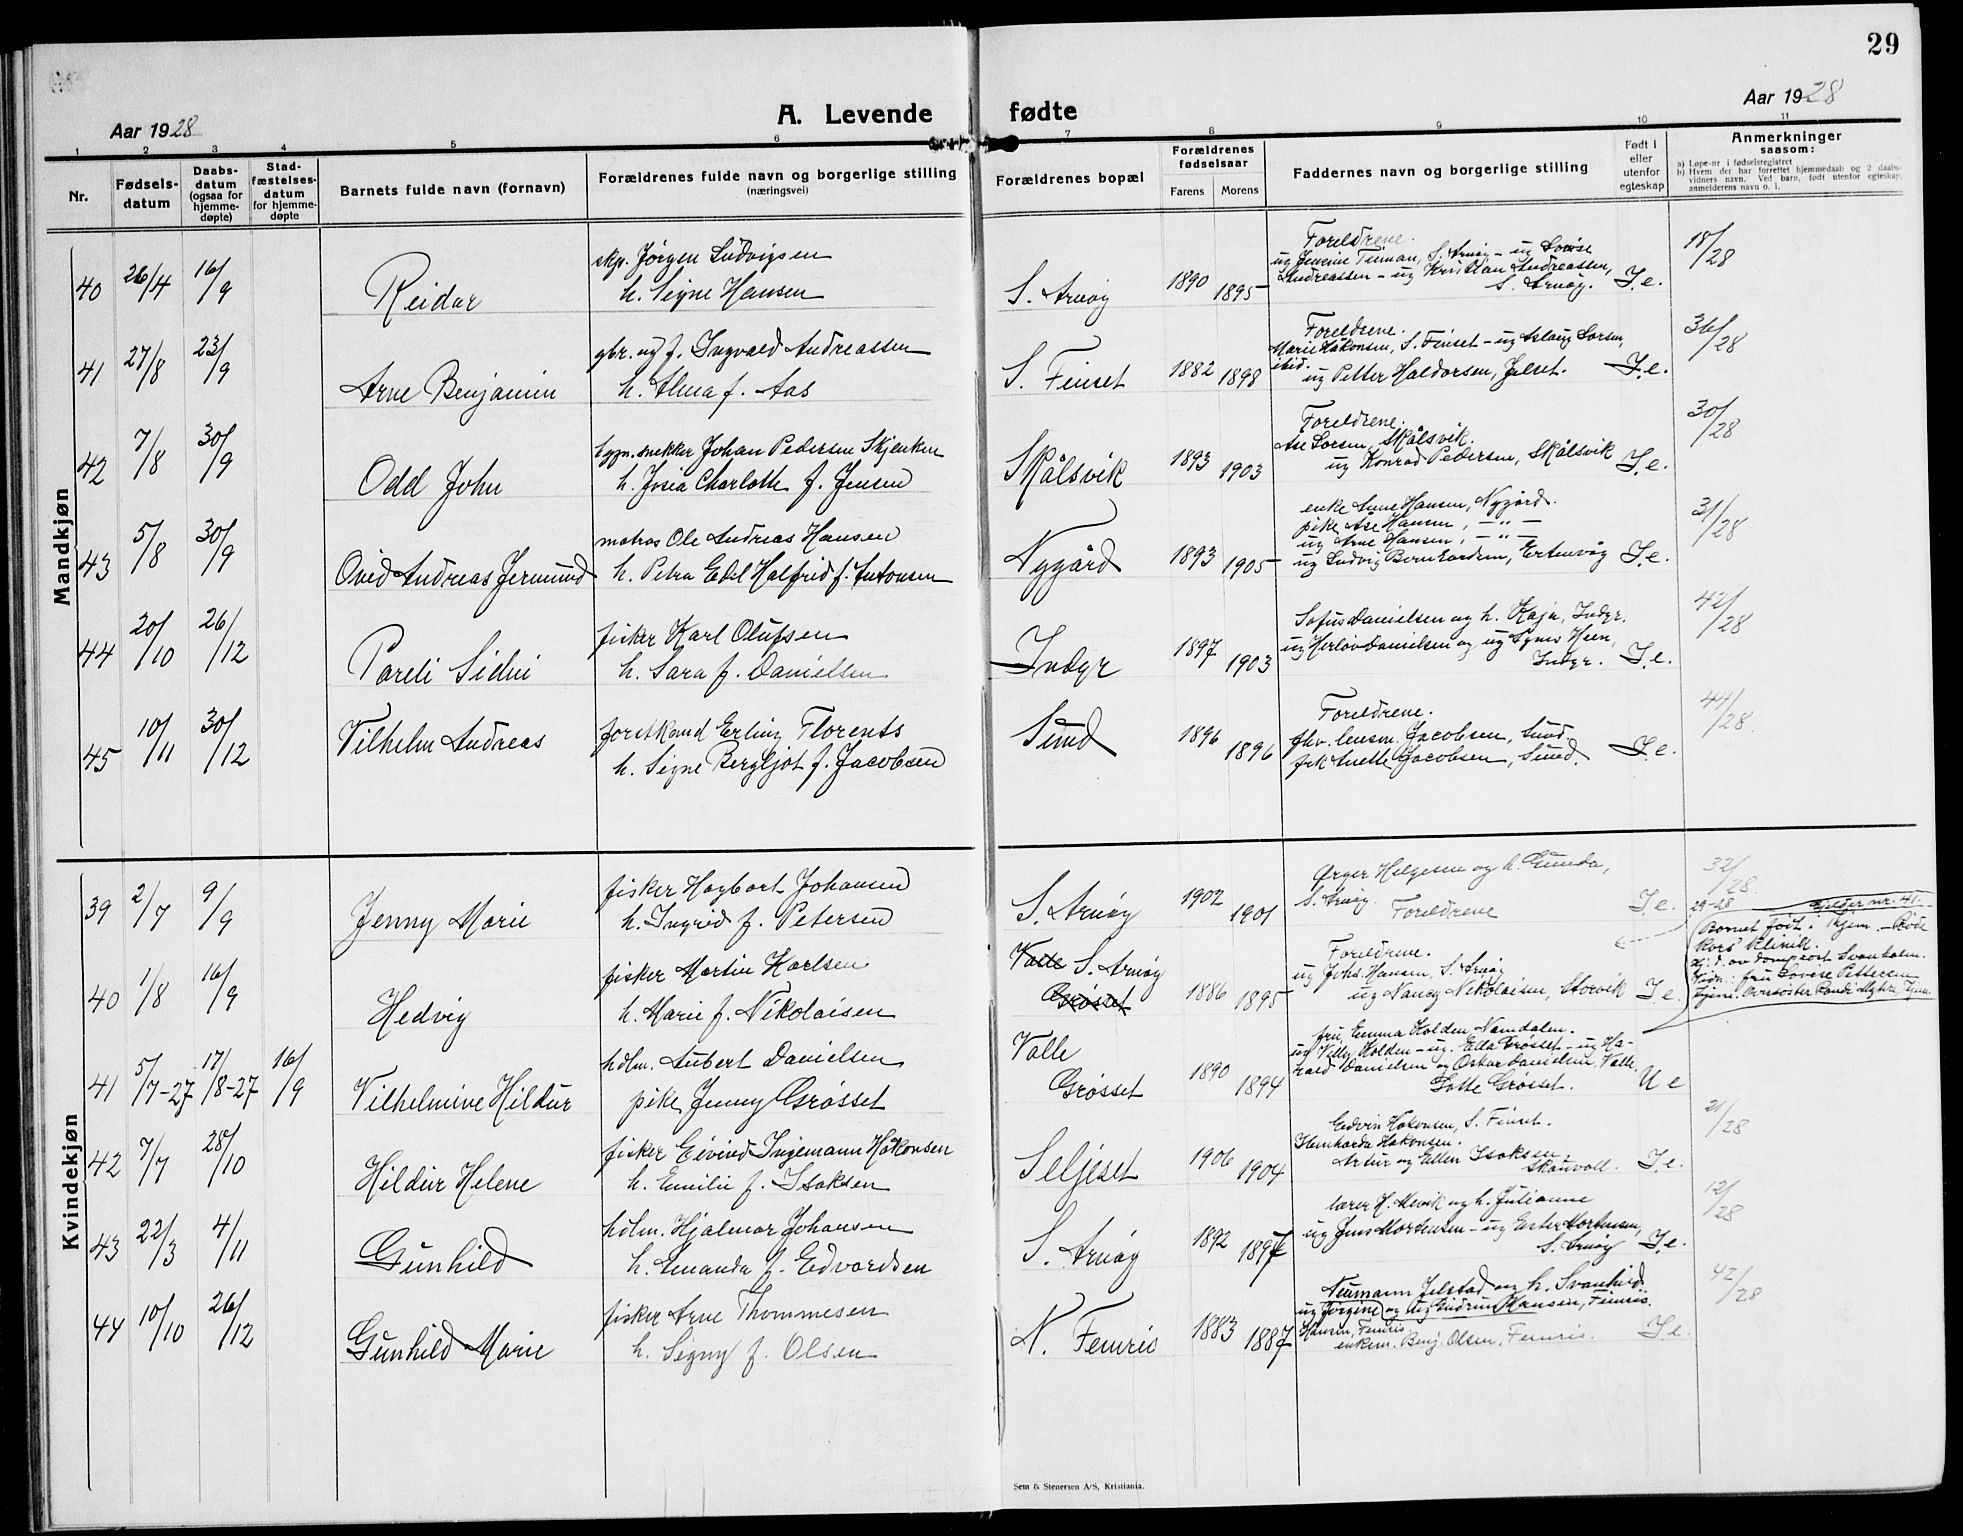 29
Aar 1928
A. Levende fødte
Aar 1928
1 2 3 4 5 6 7 8 9 10 11
Nr.
Fødsels-
datum
Daabs-
datum
(ogsaa for
hjemme-
døpte)
Stad-
fæstelses-
datum
for hjemme-
døpte
Barnets fulde navn (fornavn)
Forældrenes fulde navn og borgerlige stilling
(næringsvei)
Forældrenes bopæl
Forældrenes
fødselsaar
Farens Morens
Faddernes navn og borgerlige stilling
Født i
eller
utenfor
egteskap
Anmerkninger
saasom:
a) Løpe-nr. i fødselsregistret
b) Hvem der har forrettet hjemmedaab og 2 daabs-
vidners navn. Ved barn, født utenfor egteskap,
anmelderens navn o. l.
Mandkjøn
40 26/4 16/9 Reidar
skp. Jörgen Ludvigsen
h. Signe Hansen
S. Arnøy 1890 1895
Foreldrene.
ug Jenine Tuman, S. Arnøy - ug Lovise
Andreassen - ug Kristian Andreassen,
S. Arnøy. I.e.
18/28
41 27/8 23/9 Arne Benjamin
gbr. ug f. Ingvald Andreassen
h. Alma f. Aas
S. Finset 1882 1898
Foreldrene.
Marie Håkonsen, S. Finset - ug Aslaug Larsen,
ibid.
ug Petter Haldorsen, Jelset. I.e.
36/28
42 7/8 30/9 Odd John
bygn. snekker Johan Pedersen Skjenken
h. Josia Charlotte f. Jensen
Skålsvik 1893 1903
Foreldrene.
Ase Larsen, Skålsvik.
ug Konrad Pedersen, Skålsvik I.e.
30/28
43 5/8 30/9 Ovid Andreas Jermund
matros Ole Andreas Hansen
h. Petra Edel Halfrid f. Antonsen
Nygård 1893 1905
enke Anne Hansen, Nygård.
pike Åse Hansen, — „ —
ug Arne Hansen, — „ —
ug Ludvig Bernhardsen, Ertenvåg I.e.
31/28
44 20/10 26/12 Pareli Sidni
fisker Karl Olufsen
h. Sara f. Danielsen
Indyr 1897 1903
Sofus Danielsen og h. Kaja, Indyr.
ug Herlov Danielsen og ug Synes Heen,
Indyr. I.e.
42/28
45 10/11 30/12 Vilhelm Andreas
forstkand Erling Florents
h. Signe Bergljot f. Jacobsen
Sund 1896 1896
Foreldrene.
fhv. lensm. Jacobsen, Sund.
frk Anette Jacobsen, Sund. I.e.
44/28.
Kvindekjøn
39 2/7 9/9 Jenny Marie
fisker Hagbart Johansen
h. Ingrid f. Petersen
S. Arnøy 1902 1901
Ørger Helgesen og h. Gunda,
S. Arnøy. Foreldrene I.e.
32/28.
40 1/8 16/9 Hedvig
fisker Martin Karlsen
h. Marie f. Nikolaisen
Valle S. Arnøy
Grøsset
1886 1895
Foreldrene.
ug Johs. Hansen, S. Arnøy
ug Nancy Nikolaisen, Storvik I.e.
29-28 Gjelder nr. 41.
Barnet født i Thjem. — Røde
Kors' klinikk.
Hj. d. av domprost Svanholm.
Vidn.: fru Lovise Pettersen
41 5/7-27 17/8-27 16/9 Vilhelmine Hildur
hdlm. Aubert Danielsen
pike Jenny Grøsset
Valle
Grøsset 1890 1894
fru Emma Holden Namdalen.
ug Villy Holden - ug. Ella Grøsset - ug Ha-
rald Danielsen og Oskar Danielsen, Valle,
Lotte Grøsset. U e
42 7/7 28/10 Hildur Helene
fisker Eivind Ingemann Håkonsen
h. Emilie f. Isaksen
Seljeset 1906 1904
Edvin Håkonsen, S. Finset.
Håkonsen.
Artur og Ellen Isaksen,
Skauvoll. I.e.
21/28
43 22/3 4/11 Gunhild
hdlm. Hjalmar Johansen
h. Amanda f. Edvardsen
S. Arnøy 1892 1897
lærer H. Mevik og h. Julianne
ug Jens Mortensen - ug Ester Mortensen,
S. Arnøy I.e.
12/28
44 10/10 26/12 Gunhild Marie
fisker Arne Thommesen
h. Signy f. Olsen
N. Femris 1883 1887
Neumann Jelstad og h. Svanhild
ug Jorgine og ug Gudrun Hansen, Femris.
Hansen, Femris
enkem. Benj. Olsen, Femris. I.e.
42/28
Sem & Stenersen A/S, Kristiania.